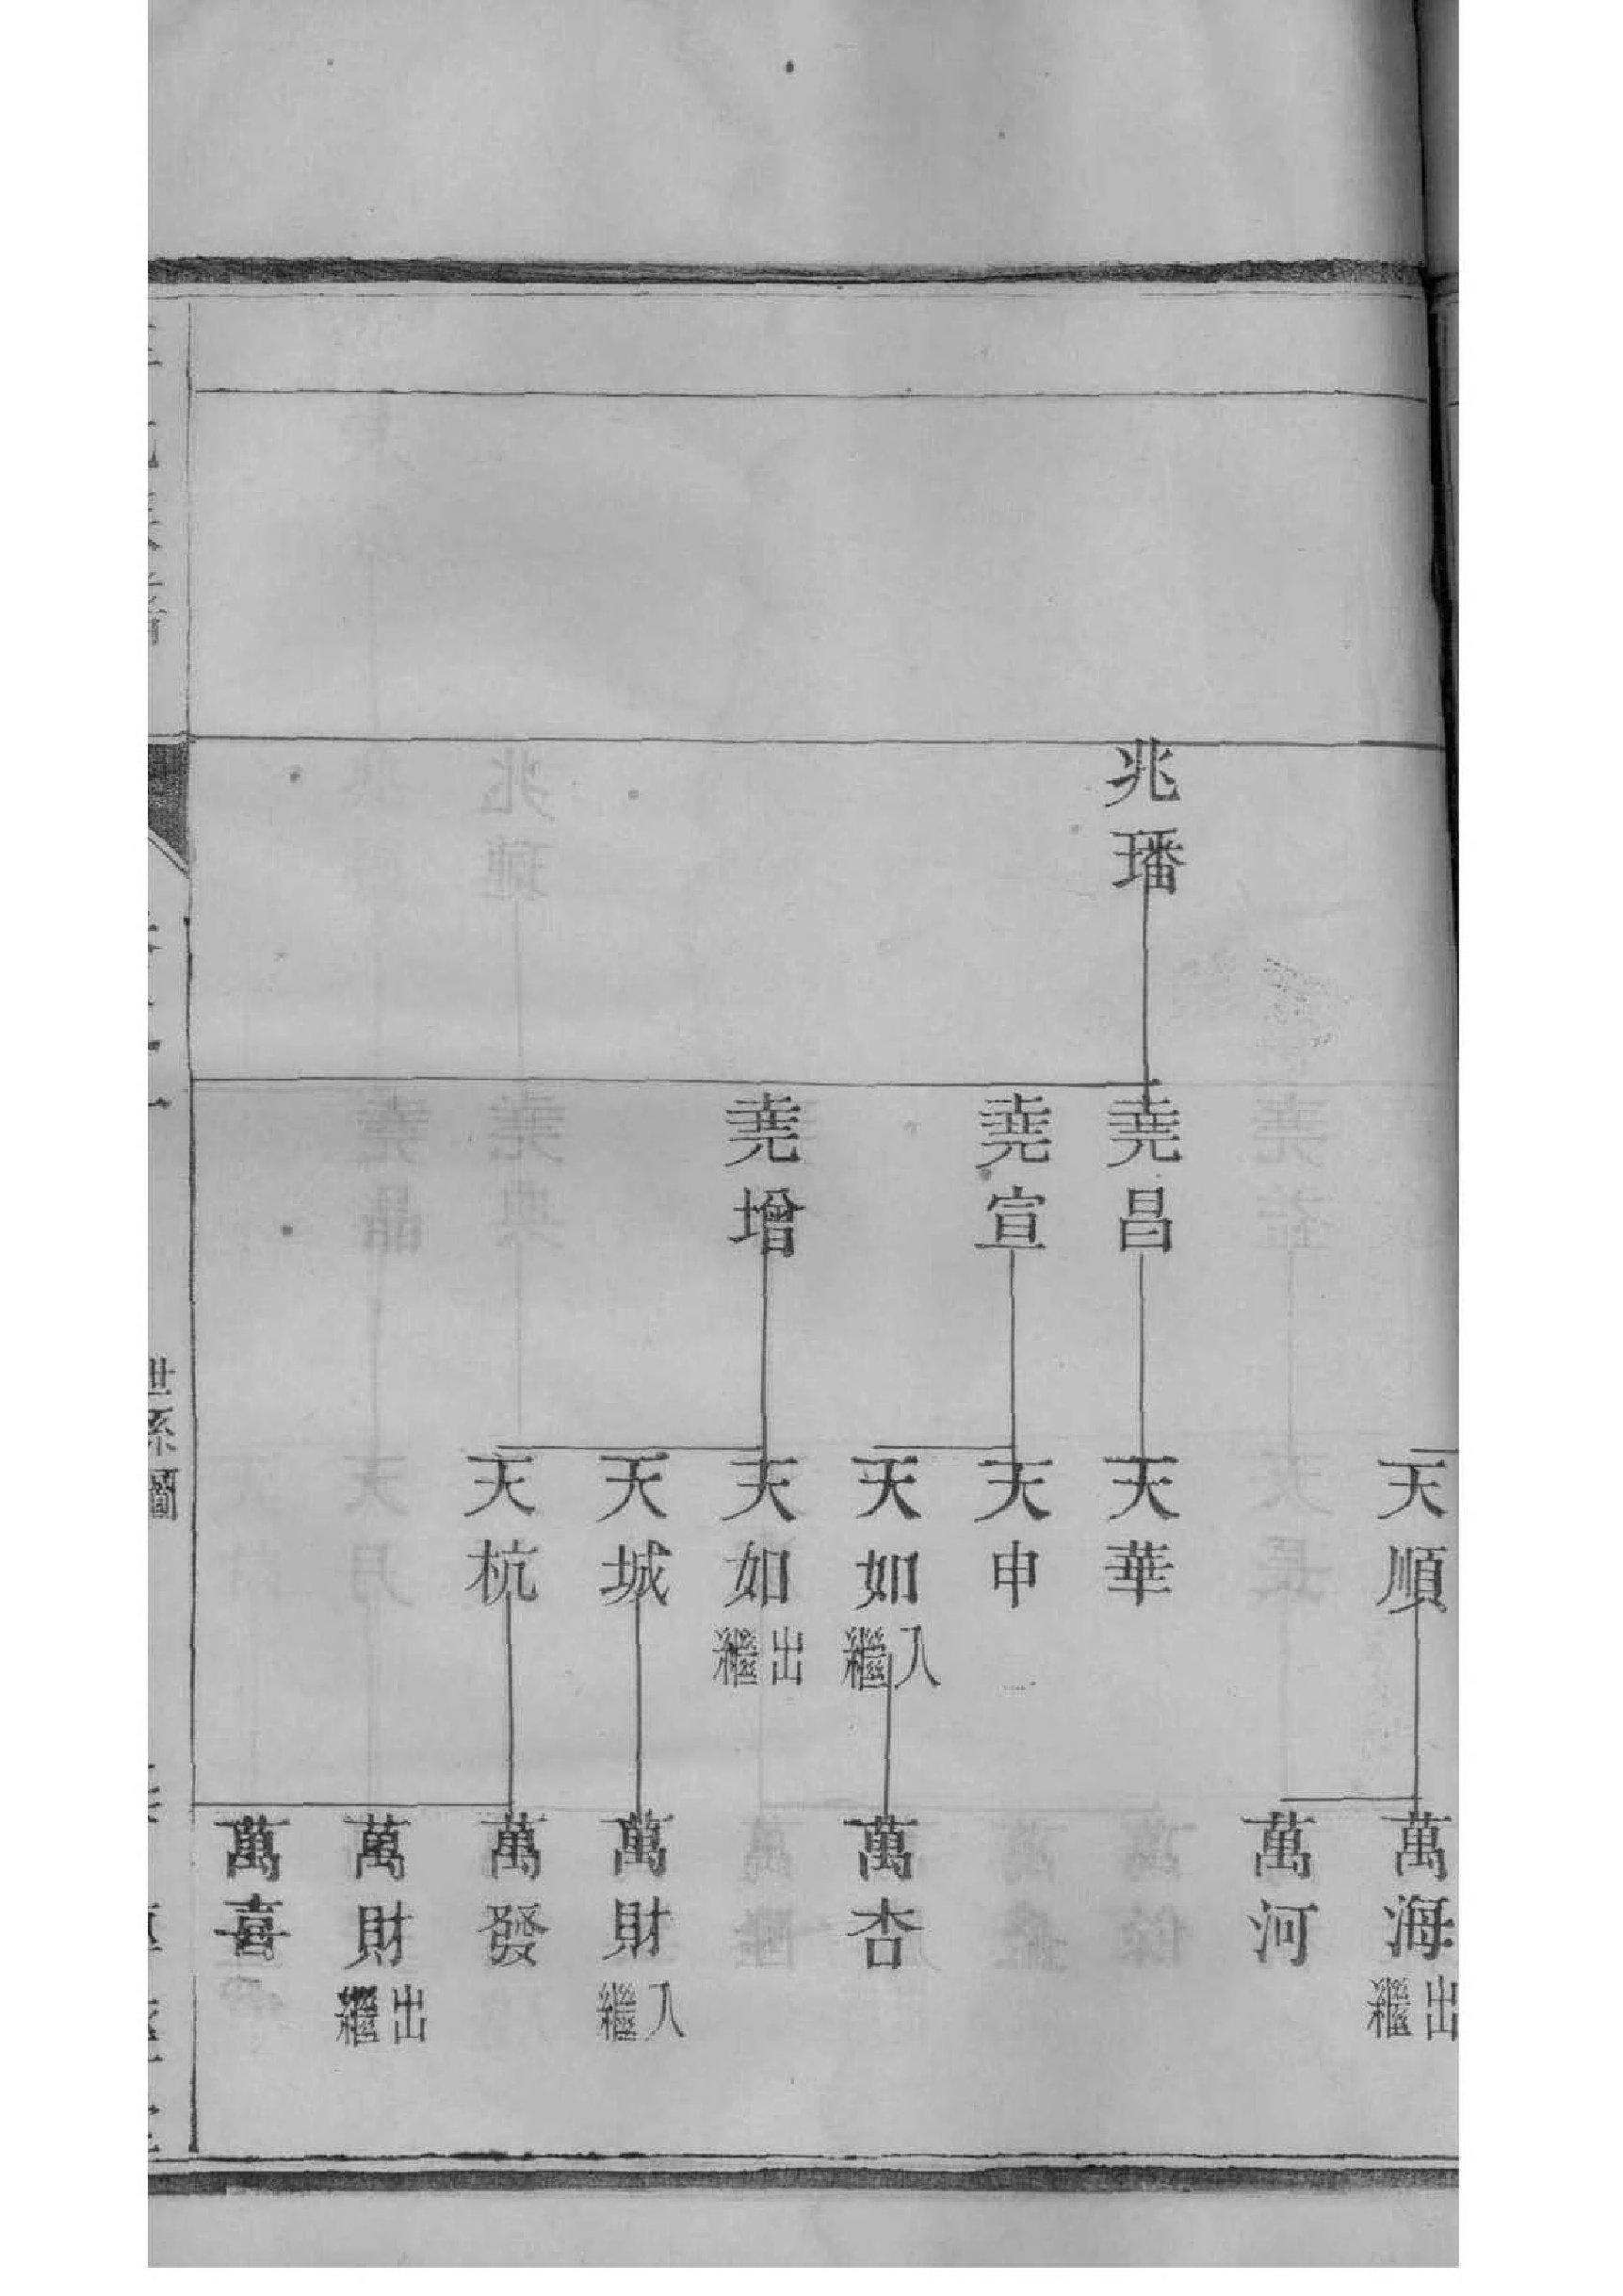 天順
萬海
出繼
萬河
兆璠
堯昌
天華
堯宣
天申
天如
入繼
萬杏
堯增
天如
出繼
天城
萬財
入繼
天杭
萬發
萬財
出繼
萬喜
世系圖